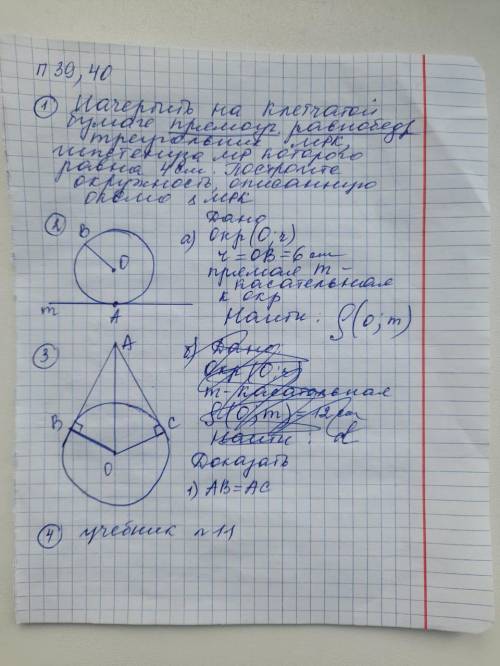 п 39, 40
1 Начертить на клетчатой
бумаге прямоуг. равнобедр
треугольник МРК,
гипотенуза МР которого
равна 4 см. Постройте
окружность, описанную
около Δ МРК
2 Дано
а) Окр (О; r)
r = ОВ = 6 см
прямая m -
касательная
к окр
Найти: ρ(о; m)
В
О
m
А
3
А
В
С
О
б) Дано
Окр (О; r)
m - касательная
ρ(О; m) = 12 см
Найти: d
Доказать
1) АВ = АС
4 учебник п 11